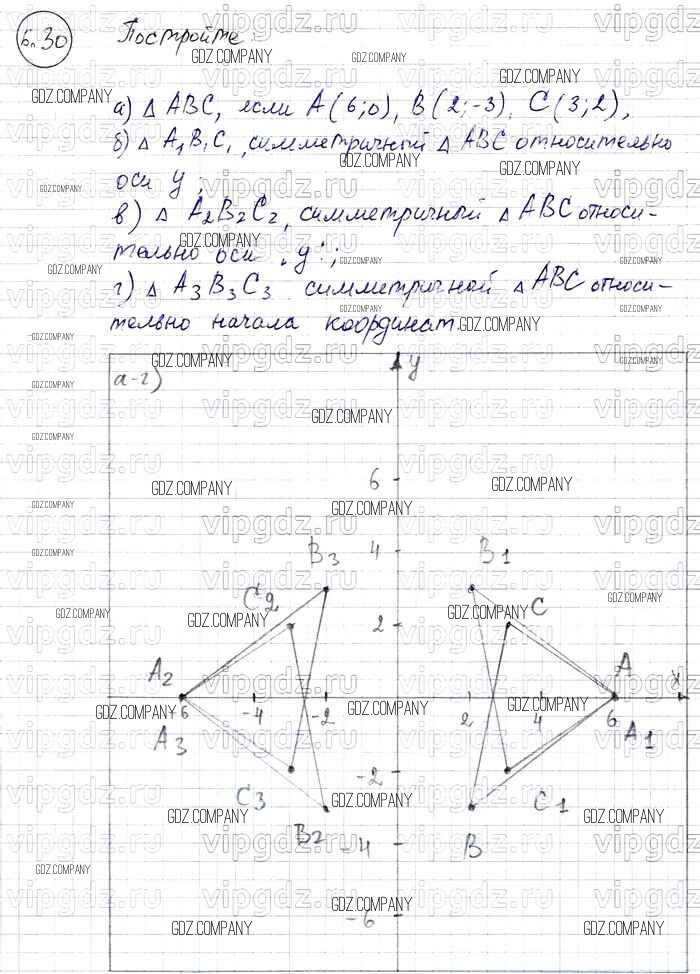 Б.30 Постройте:
а) △ ABC, если A(6;0), B(2;-3), C(3;2),
б) △ A₁B₁C₁, симметричный △ ABC относительно
оси y;
в) △ A₂B₂C₂, симметричный △ ABC относи-
тельно оси "y";
г) △ A₃B₃C₃ симметричной △ ABC относи-
тельно начала координат.
а-г)
y
6
B₃ 4 B₁
C₂ 2 C
A₂ A x
-6 -4 -2 2 4 6
A₃ A₁
-2
C₃ C₁
B₂ -4 B
-6
GDZ.COMPANY
vipgdz.ru